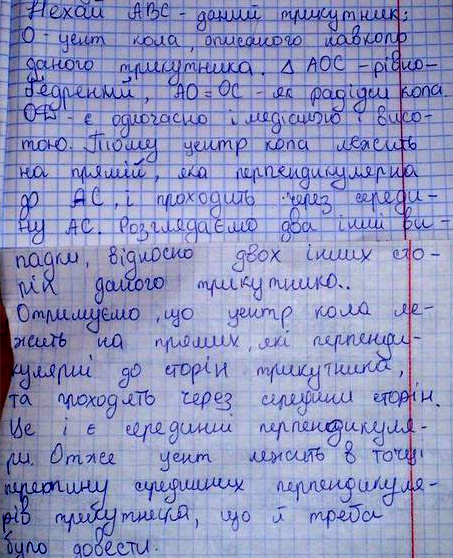 Нехай АВС - даний трикутник;
О - цент кола, описаного навколо
даного трикутника. Δ АОС - рівно-
бедренний, АО = ОС - як радіуси кола.
є одночасно і медіаною і висо-
тою. Тому центр кола лежить
на прямій, яка перпендикулярна
до АС, і проходить через середи-
ну АС. Розглядаємо два інші ви-
падки, відносно двох інших сто-
рін даного трикутника..
Отримуємо, що центр кола ле-
жить на прямих, які перпенди-
кулярні до сторін трикутника,
та проходять через середини сторін.
Це і є серединні перпендикуля-
ри. Отже цент лежить в точці
перетину серединних перпендикуля-
рів трикутника, що й треба
було довести.